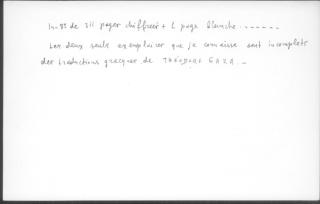 In-8° de 311 pages chiffrées + 1 page blanche . - - - - - -
Les deux seuls exemplaires que je connaisse sont incomplets
des traductions grecques de THÉODORE GAZA . -